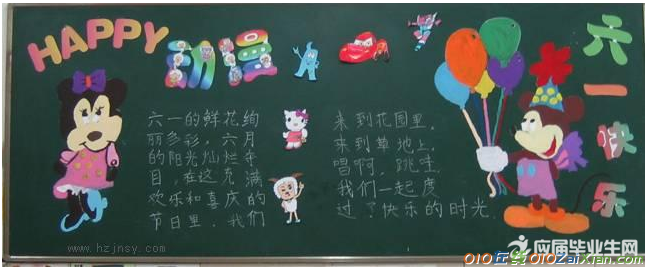 HAPPY
动漫
六一快乐
六一的鲜花绚
丽多彩，六月
的阳光灿烂夺
目，在这充满
欢乐和喜庆的
节日里，我们
来到花园里，
来到草地上，
唱啊，跳，
我们一起度
过了快乐的时光
www.hzjnsy.com
应届毕业生网
010在线010zaixian.com